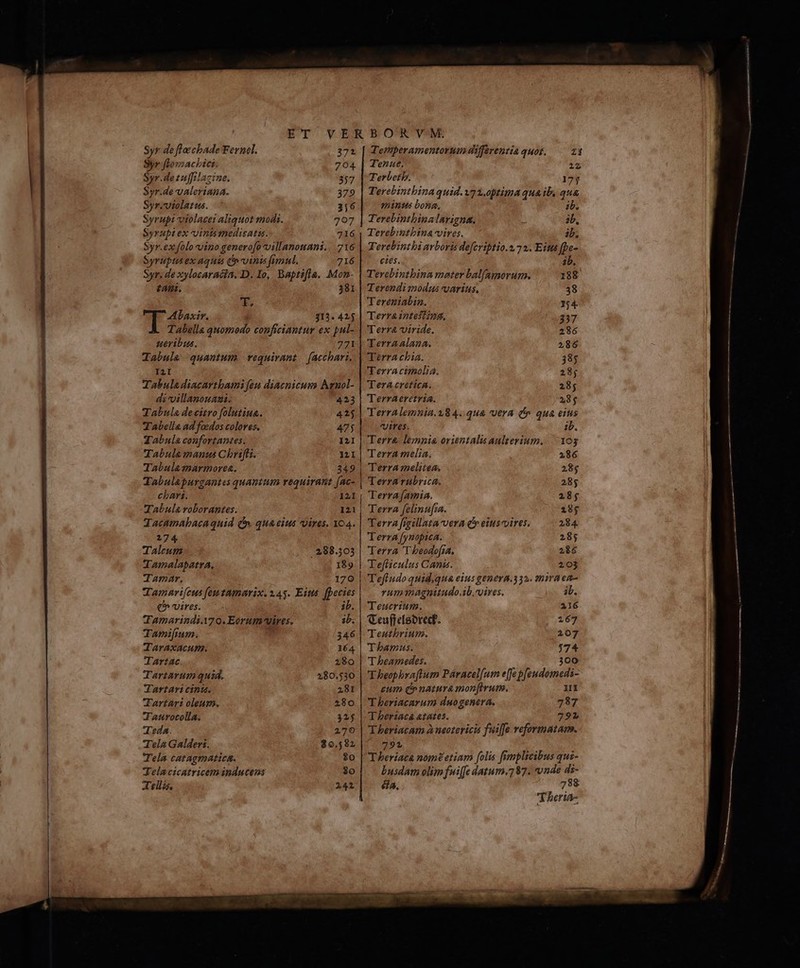 ET VERBORVM.
Syr de ſtœchade Fernel. 372
Syr. ſtomachici. 704
Syr. de tuſſilagine. 357
Syr. de valeriana. 379
Syr. violatus. 356
Syrupi violacei aliquot modi. 707
Syrupi ex vinis medicatis. 716
Syr. ex ſolo vino generoſo villanouani. 716
Syrupus ex aquis & vinis ſimul. 716
Syr. de xylocaracta. D. Io. Baptiſta. Mon-
tani. 381
T.
TAbaxir. 313. 425
Tabella quomodo conficiantur ex pul-
ueribus. 771
Tabula quantum requirant ſacchari.
121
Tabula diacarthami ſeu diacnicum Arnol-
di villanouani. 423
Tabula de citro ſolutiua. 425
Tabella ad fœdos colores. 475
Tabula confortantes. 121
Tabula manus Chriſti. 121
Tabula marmorea. 349
Tabula purgantes quantum requirant ſac-
chari. 121
Tabula roborantes. 121
Tacamahaca quid & qua eius vires. 104.
274
Talcum 288.303
Tamalapatra, 189
Tamar, 170
Tamariſcus ſeu tamarix. 245. Eius ſpecies
& vires. ib.
Tamarindi. 170. Eorum vires. ib.
Tamiſium. 346
Taraxacum. 164
Tartac 280
Tartarum quid. 280.530
Tartari cinis. 281
Tartari oleum. 280
Taurocolla. 325
Teda 270
Tela Galderi. 80.582
Tela catagmatica. 80
Tela cicatricem inducens 80
Tellis, 242
Temperamentorum differentia quot. 21
Tenue. 22
Terbeth. 175
Terebinthina quid. 272. optima qua ib. qua
minus bona. ib.
Terebinthina larigna. ib.
Terebinthina vires. ib.
Terebinthi arboris deſcriptio. 272. Eius ſpe-
cies. ib.
Terebinthina mater balſamorum. 188
Terendi modus varius. 38
Tereniabin. 154
Terra inteſtina, 337
Terra viride. 286
Terra alana. 286
Terra chia. 385
Terra cimolia. 285
Tera cretica. 285
Terra eretria. 285
Terra lemnia. 284. qua vera & qua eius
vires. ib.
Terra lemnia orientalis aulterium. 103
Terra melia. 286
Terra melitea, 285
Terra rubrica. 285
Terra ſamia. 285
Terra ſelinuſia. 285
Terra ſigillata vera & eius vires. 284
Terra ſynopica. 285
Terra Theodoſia, 286
Teſticulus Canis. 203
Teſtudo quid, qua eius genera. 332. mira ea-
rum magnitudo. ib. vires. ib.
Teucrium. 216
Teuffelsdreck. 267
Teuthrium. 207
Thamus. 574
Theamedes. 300
Theophraſtum Paracelſum eſſe pſeudomedi-
cum & natura monſtrum. 111
Theriacarum duo genera. 787
Theriaca ætates. 792
Theriacam à neotericis fuiſſe reformatam.
792
Theriaca nomē etiam ſolis ſimplicibus qui-
busdam olim fuiſſe datum. 787. vnde di-
cta, 788
Theria-